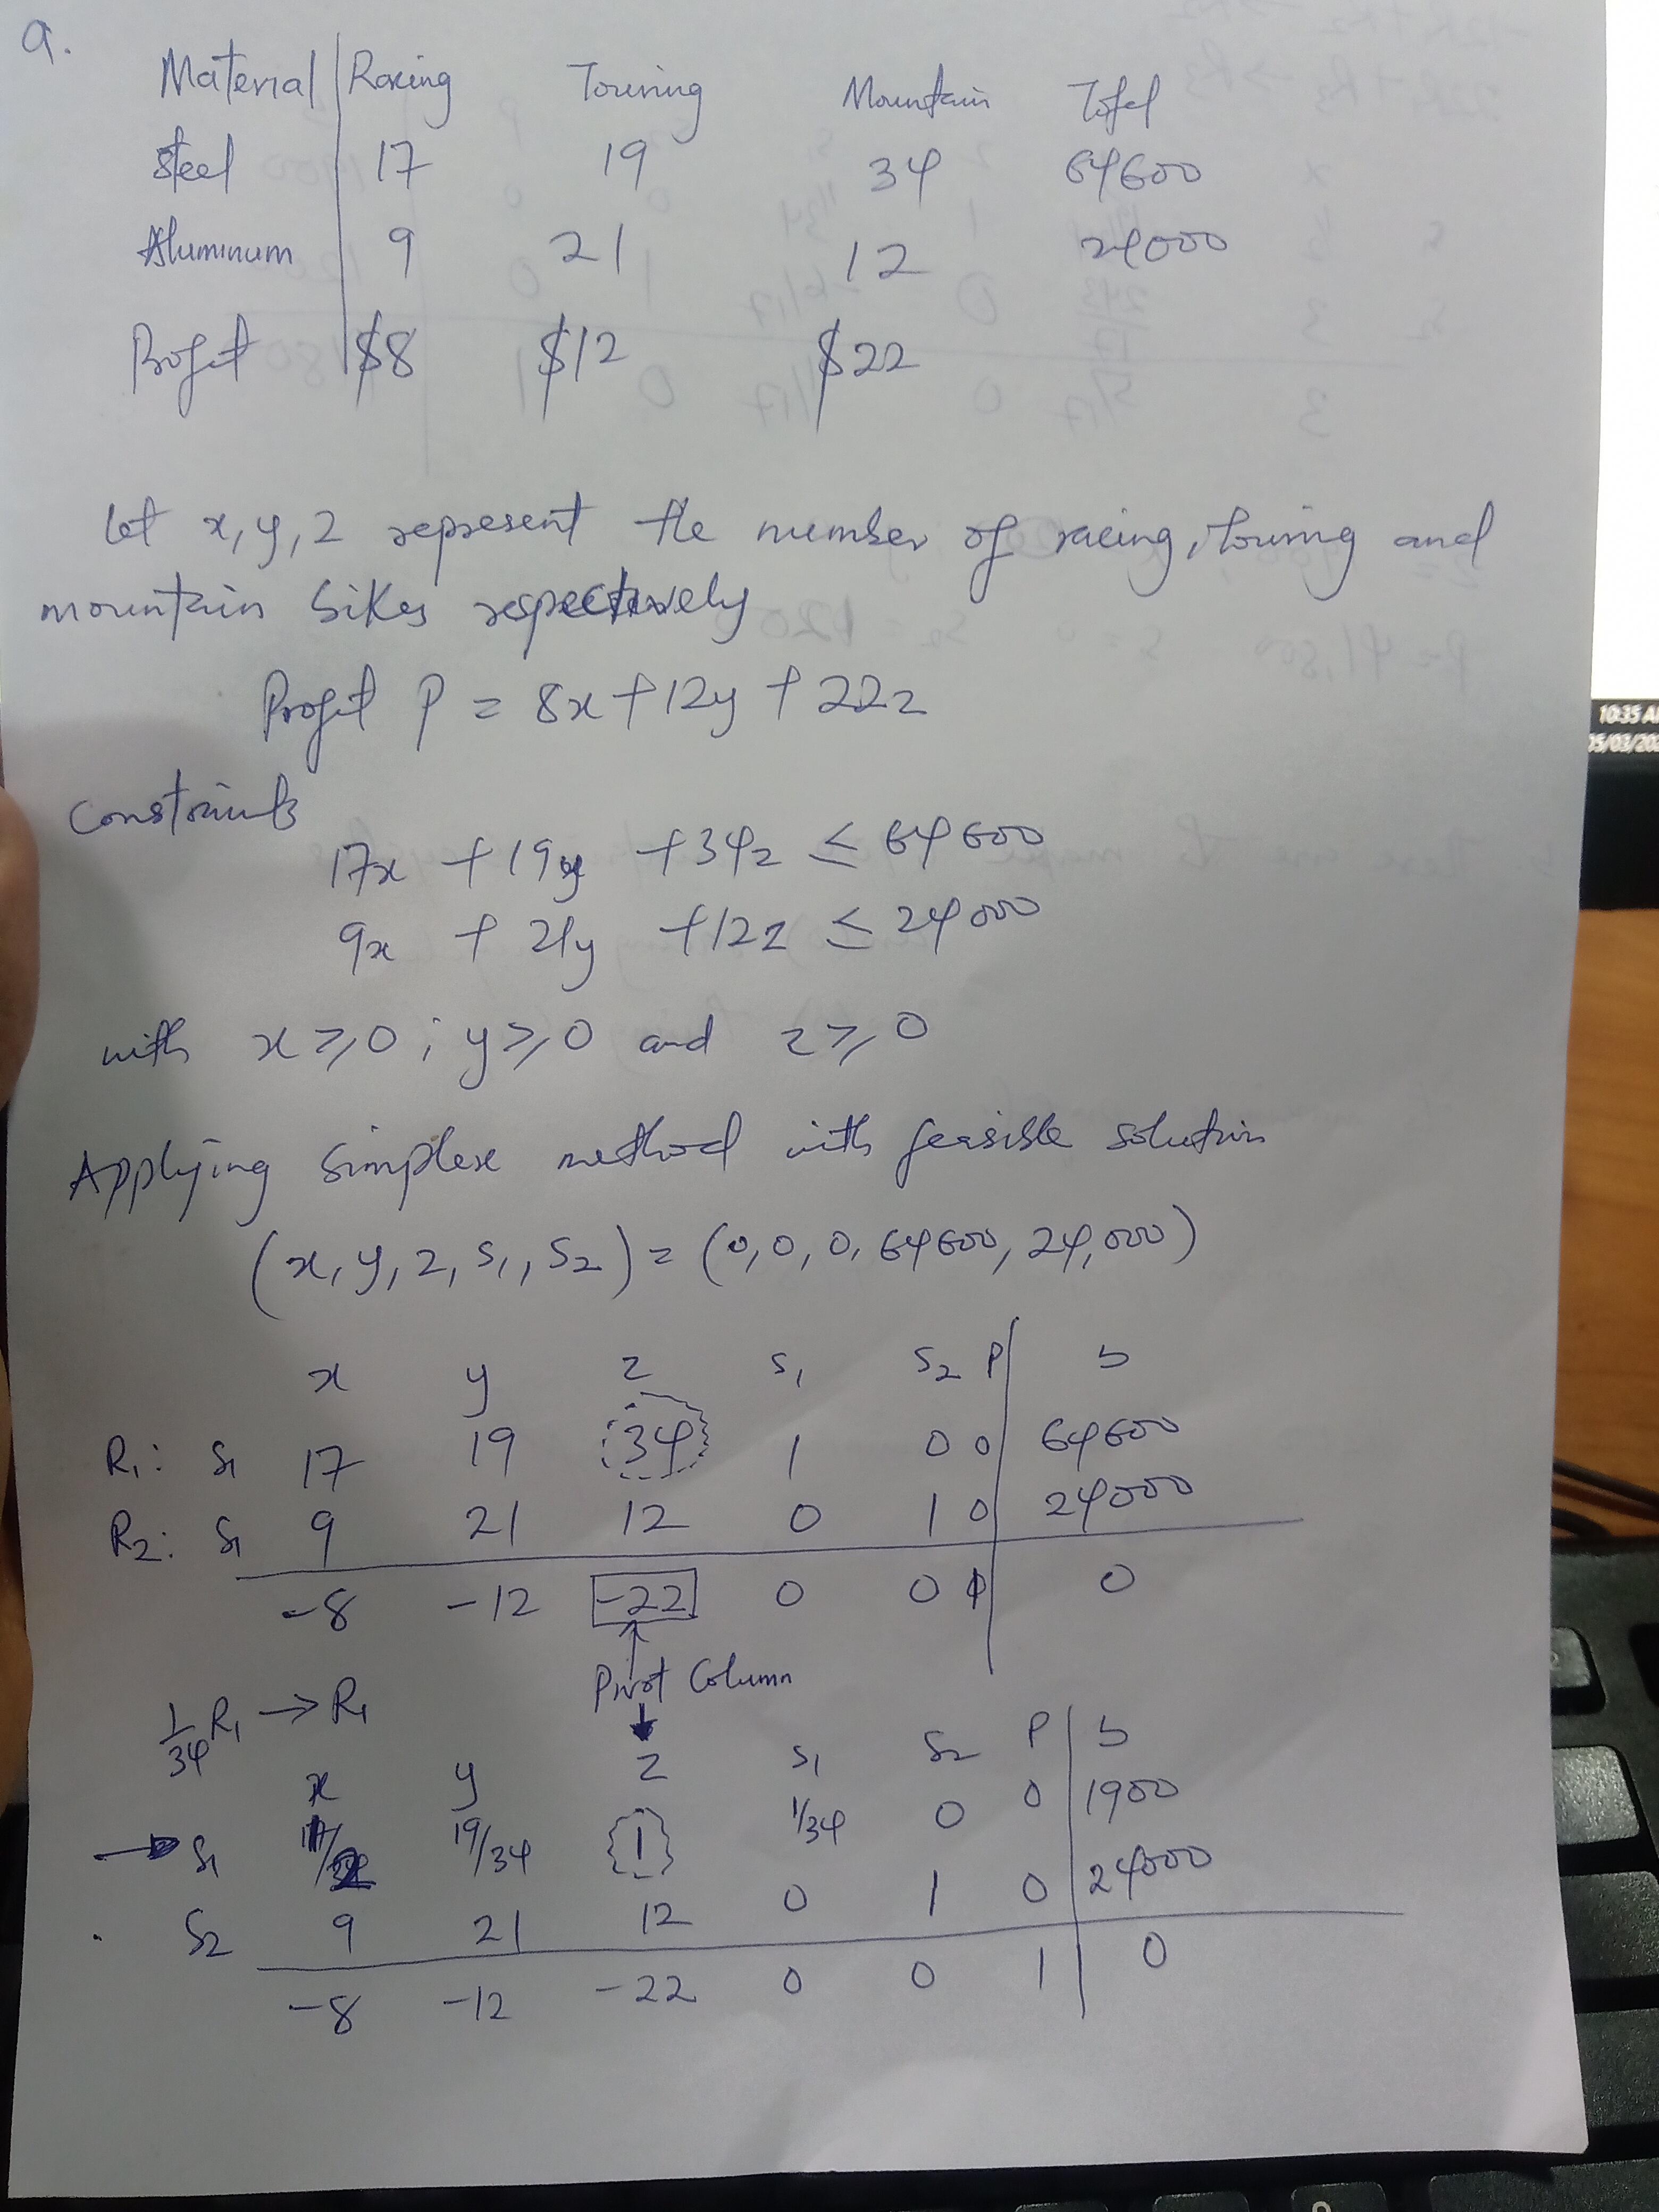 a.
Material | Racing Touring Mountain Total
Steel 17 19 34 64600
Aluminum 9 21 12 24000
Profit $8 $12 $22
Let x, y, z represent the number of racing, touring and
mountain bikes respectively
Profit P = 8x + 12y + 22z
Constraints
17x + 19y + 34z ≤ 64600
9x + 21y + 12z ≤ 24000
with x ≥ 0 ; y ≥ 0 and z ≥ 0
Applying simplex method with feasible solution
(x, y, z, s₁, s₂) = (0, 0, 0, 64600, 24,000)
x y z s₁ s₂ P | b
R₁: s₁ 17 19 34 1 0 0 | 64600
R₂: s₁ 9 21 12 0 1 0 | 24000
-8 -12 -22 0 0 1 | 0
Pivot Column
1/34 R₁ → R₁
x y z s₁ s₂ P | b
→ s₁ 1/2 19/34 1 1/34 0 0 | 1900
s₂ 9 21 12 0 1 0 | 24000
-8 -12 -22 0 0 1 | 0
10:35 A